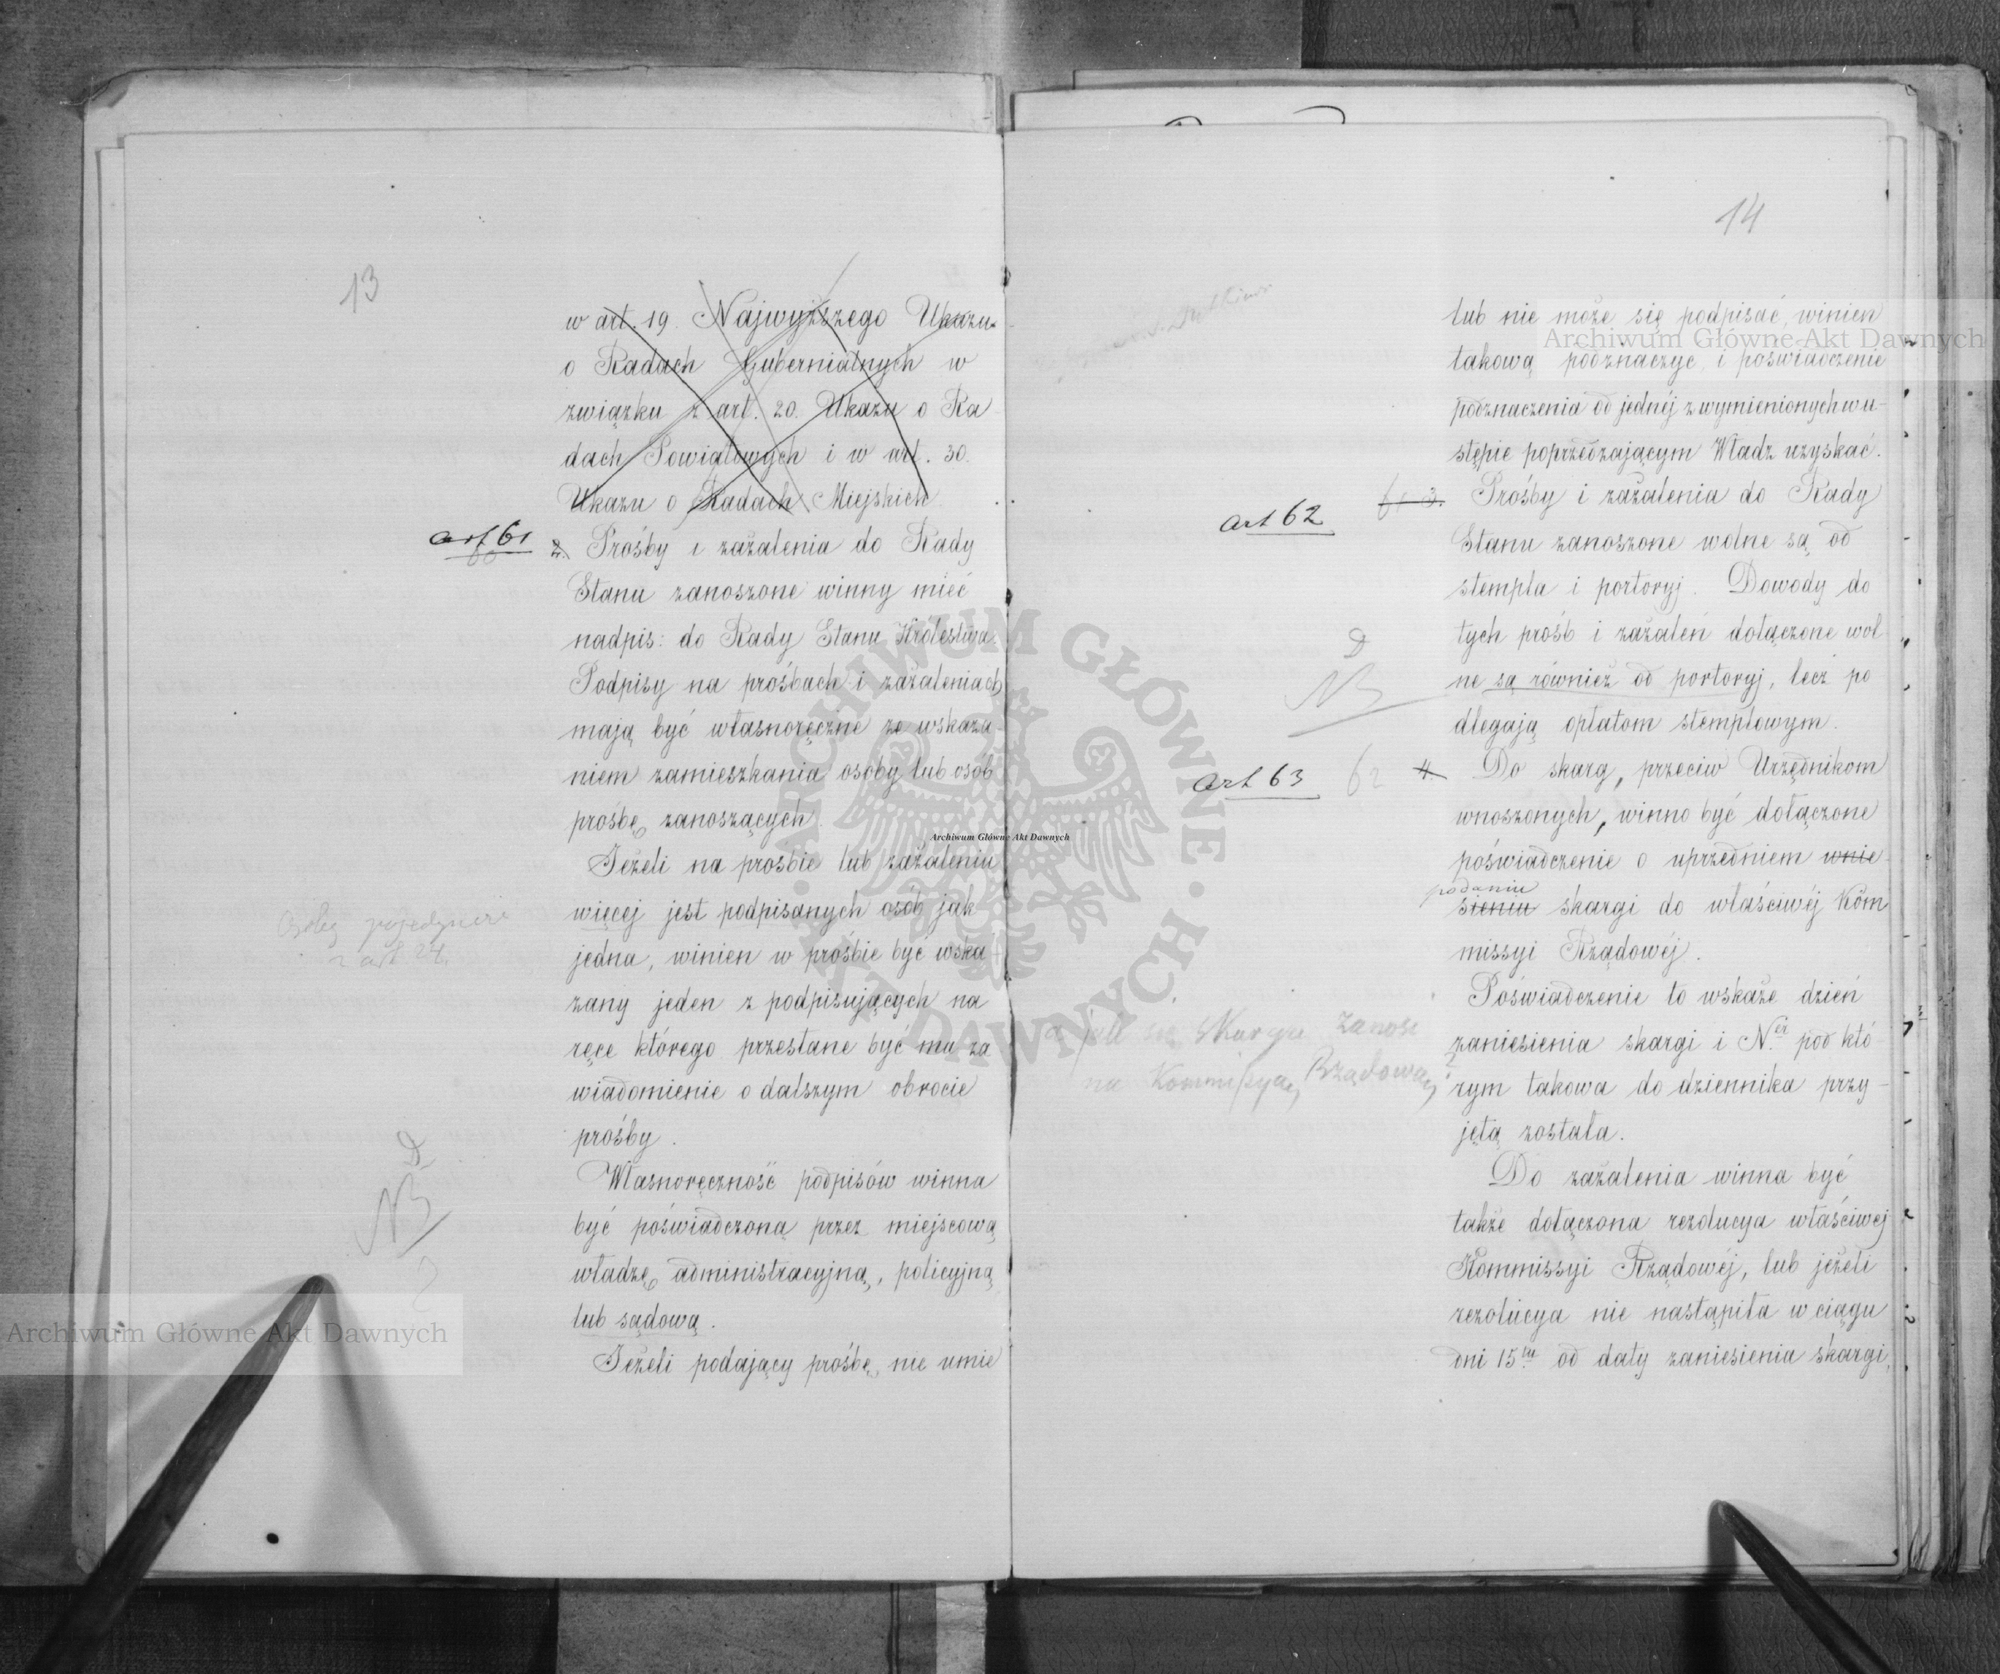 13
w art. 19. Najwyższego Ukazu
o Radach Gubernialnych w
związku z art. 20. Ukazu o Ra
dach Powiatowych i w art. 30.
Ukazu o Radach Miejskich.
art 61
60
2. Prośby i zażalenia do Rady
Stanu zanoszone winny mieć
nadpis: do Rady Stanu Królestwa.
Podpisy na prośbach i zażaleniach
mają być własnoręczne ze wskaza-
niem zamieszkania osoby lub osób
prośbę zanoszących.
Jeżeli na prośbie lub zażaleniu
więcej jest podpisanych osób jak
jedna, winien w prośbie być wska-
zany jeden z podpisujących na
ręce którego przesłane być ma za
wiadomienie o dalszym obrocie
prośby.
z art 24.
D
NB
Własnoręczność podpisów winna
być poświadczoną przez miejscową
władzę administracyjną, policyjną
lub sądową.
Jeżeli podający prośbę, nie umie
14
lub nie może się podpisać, winien
takową podznaczyć, i poświadczenie
podznaczenia od jednéj z wymienionych w u-
stępie poprzedzającym Władz uzyskać.
art 62
61 3. Prośby i zażalenia do Rady
Stanu zanoszone wolne są od
stempla i portoryj. Dowody do
tych prośb i zażaleń dołączone wol
ne są również od portoryj, lecz po
dlegają opłatom stemplowym.
D
NB
art 63
62
4. Do skarg, przeciw Urzędnikom
wnoszonych, winno być dołączone
poświadczenie o uprzedniem wnie
podaniu
sieniu skargi do właściwéj Kom
missyi Rządowéj.
Poświadczenie to wskaże dzień
zaniesienia skargi i N.er pod któ
rym takowa do dziennika przy-
jętą została.
a jeśli się skargę zanosi
na Kommissyą Rządową
Do zażalenia winna być
także dołączona rezolucya właściwej
Kommissyi Rządowéj, lub jeżeli
rezolucya nie nastąpiła w ciągu
dni 15tu od daty zaniesienia skargi,
Archiwum Główne Akt Dawnych
Archiwum Główne Akt Dawnych
Archiwum Główne Akt Dawnych
ARCHIWUM GŁÓWNE · AKT DAWNYCH ·